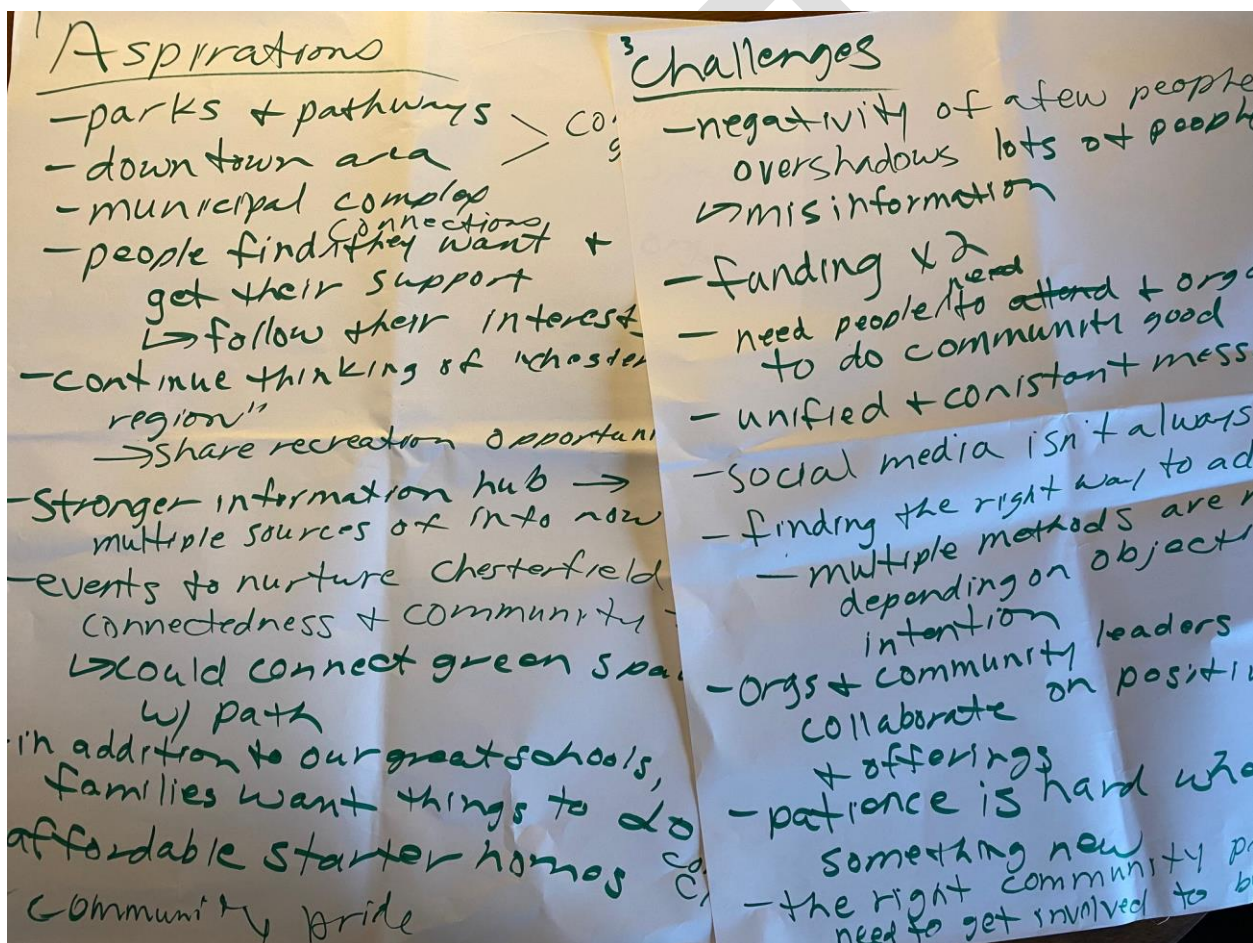 1
Aspirations
- parks + pathways > co
- downtown area
- municipal complex
connections
- people find they want +
get their support
↳ follow their interest
- continue thinking of "chester
region"
→ share recreation opportuni
- Stronger information hub →
multiple sources of info now
- events to nurture Chesterfield
connectedness + community
↳ could connect green spa
w/ path
- in addition to our great schools,
families want things to do
affordable starter homes
community pride
3
Challenges
- negativity of a few people
overshadows lots of people
↳ misinformation
- funding x 2
need
- need people / to attend + orga
to do community good
- unified + conistant mess
- social media isn't always
- finding the right way to ad
- multiple methods are n
depending on objecti
intention
- orgs + community leaders
collaborate on positiv
+ offerings
- patience is hard whe
something new
- the right community p
need to get involved to b